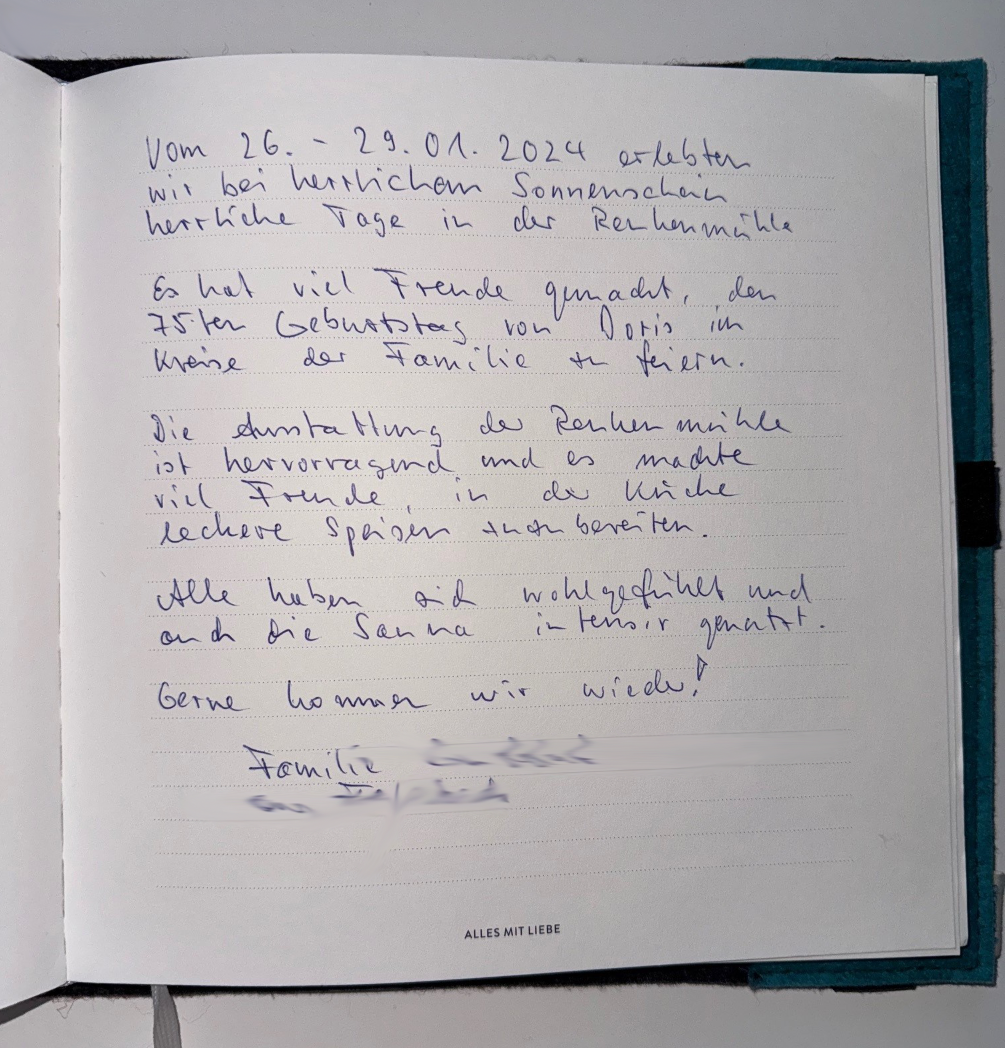 Vom 26. - 29.01.2024 erlebten
wir bei herrlichem Sonnenschein
herrliche Tage in der Renkenmühle
Es hat viel Freude gemacht, den
75-ten Geburtstag von Doris im
Kreise der Familie zu feiern.
Die Ausstattung der Renkenmühle
ist hervorragend und es machte
viel Freude, in der Küche
leckere Speisen zuzubereiten.
Alle haben sich wohlgefühlt und
auch die Sauna intensiv genutzt.
Gerne kommen wir wieder!
Familie
ALLES MIT LIEBE